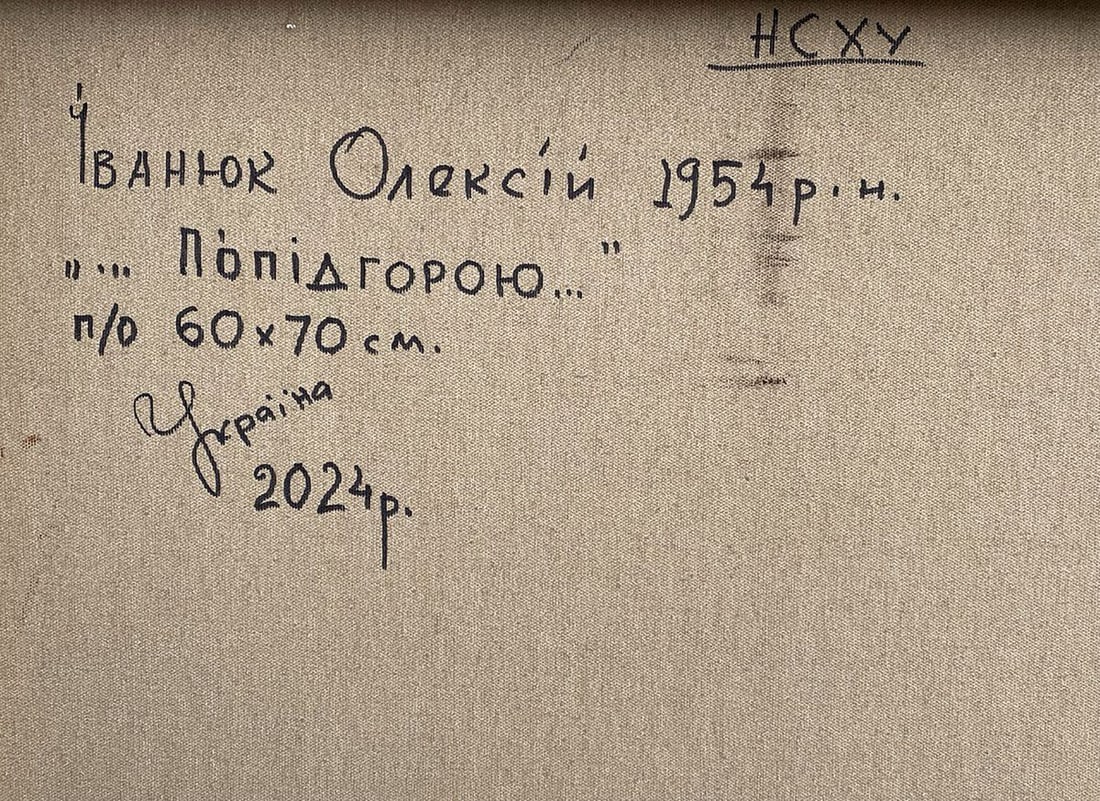 НСХУ
Іванюк Олексій 1954 р. н.
„... Попідгорою..."
п/о 60х70 см.
Україна
2024р.